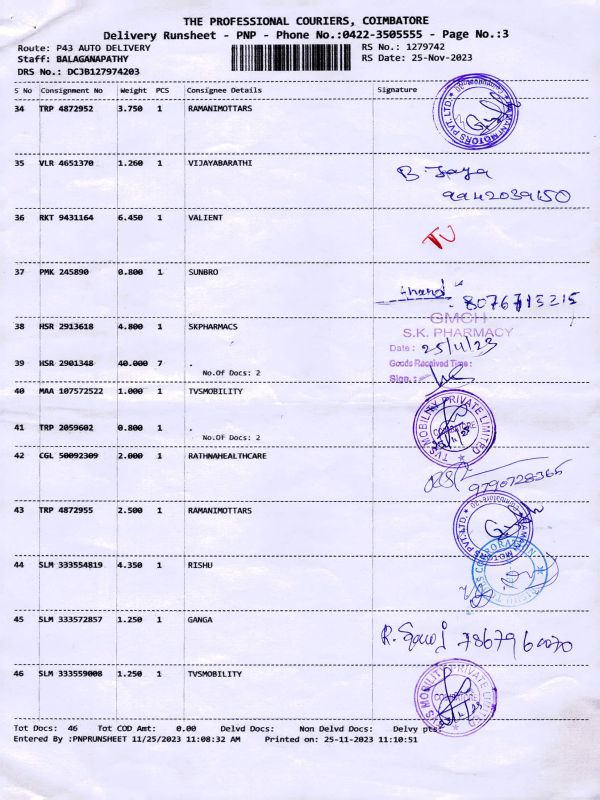 THE PROFESSIONAL COURIERS, COIMBATORE
Delivery Runsheet - PNP - Phone No.:0422-3505555 - Page No.:3
Route: P43 AUTO DELIVERY RS No.: 1279742
Staff: BALAGANAPATHY RS Date: 25-Nov-2023
DRS No.: DCJB127974203
S No Consignment No Weight PCS Consignee Details Signature
34 TRP 4872952 3.750 1 RAMANIMOTTARS
35 VLR 4651370 1.260 1 VIJAYABARATHI
B. Jaya
9942039150
36 RKT 9431164 6.450 1 VALIENT
TV
37 PMK 245890 0.800 1 SUNBRO
8076713215
38 HSR 2913618 4.800 1 SKPHARMACS
GMCH
S.K. PHARMACY
Date: 25/11/23
39 HSR 2901348 40.000 7 .
Goods Received Time:
No.Of Docs: 2
Sign.:
40 MAA 107572522 1.000 1 TVSMOBILITY
TVS MOBILITY PRIVATE LIMITED
COIMBATORE
41 TRP 2059602 0.800 1 .
No.Of Docs: 2
42 CGL 50092309 2.000 1 RATHNAHEALTHCARE
9790728365
43 TRP 4872955 2.500 1 RAMANIMOTTARS
44 SLM 333554819 4.350 1 RISHU
CORPORATION
45 SLM 333572857 1.250 1 GANGA
R. 7867960070
46 SLM 333559008 1.250 1 TVSMOBILITY
TVS MOBILITY PRIVATE LIMITED
COIMBATORE
Tot Docs: 46 Tot COD Amt: 0.00 Delvd Docs: Non Delvd Docs: Delvy pts:
Entered By :PNPRUNSHEET 11/25/2023 11:08:32 AM Printed on: 25-11-2023 11:10:51